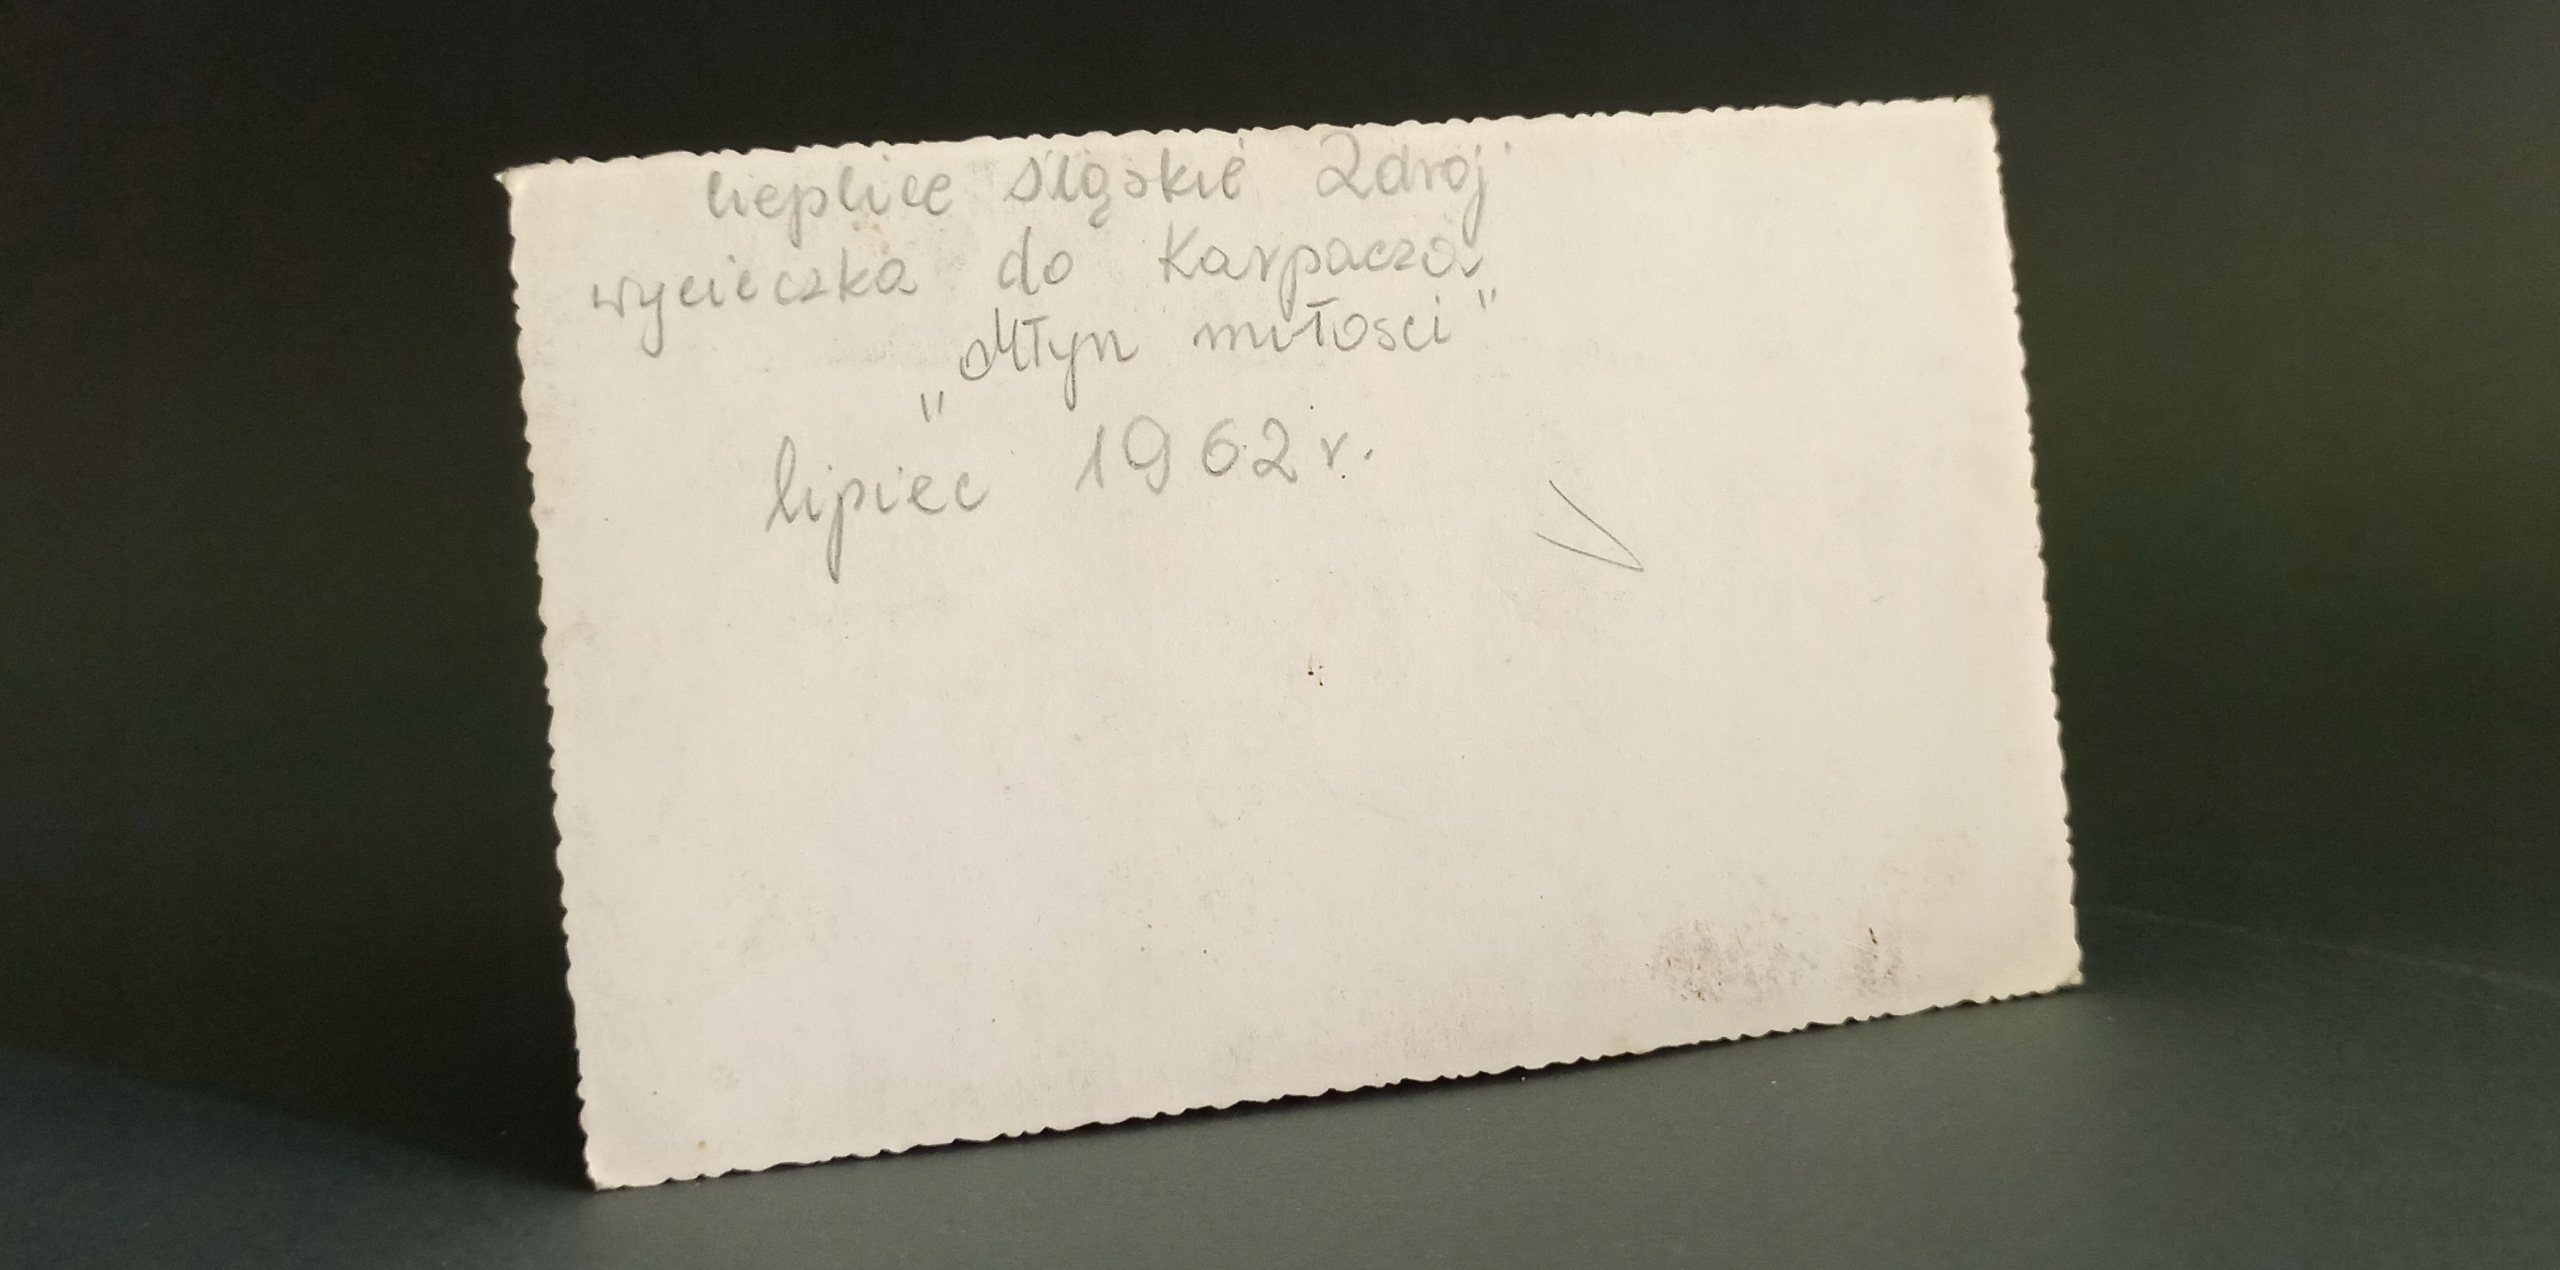 Cieplice Śląskie Zdrój
wycieczka do Karpacza
„Młyn miłości”
lipiec 1962 r.